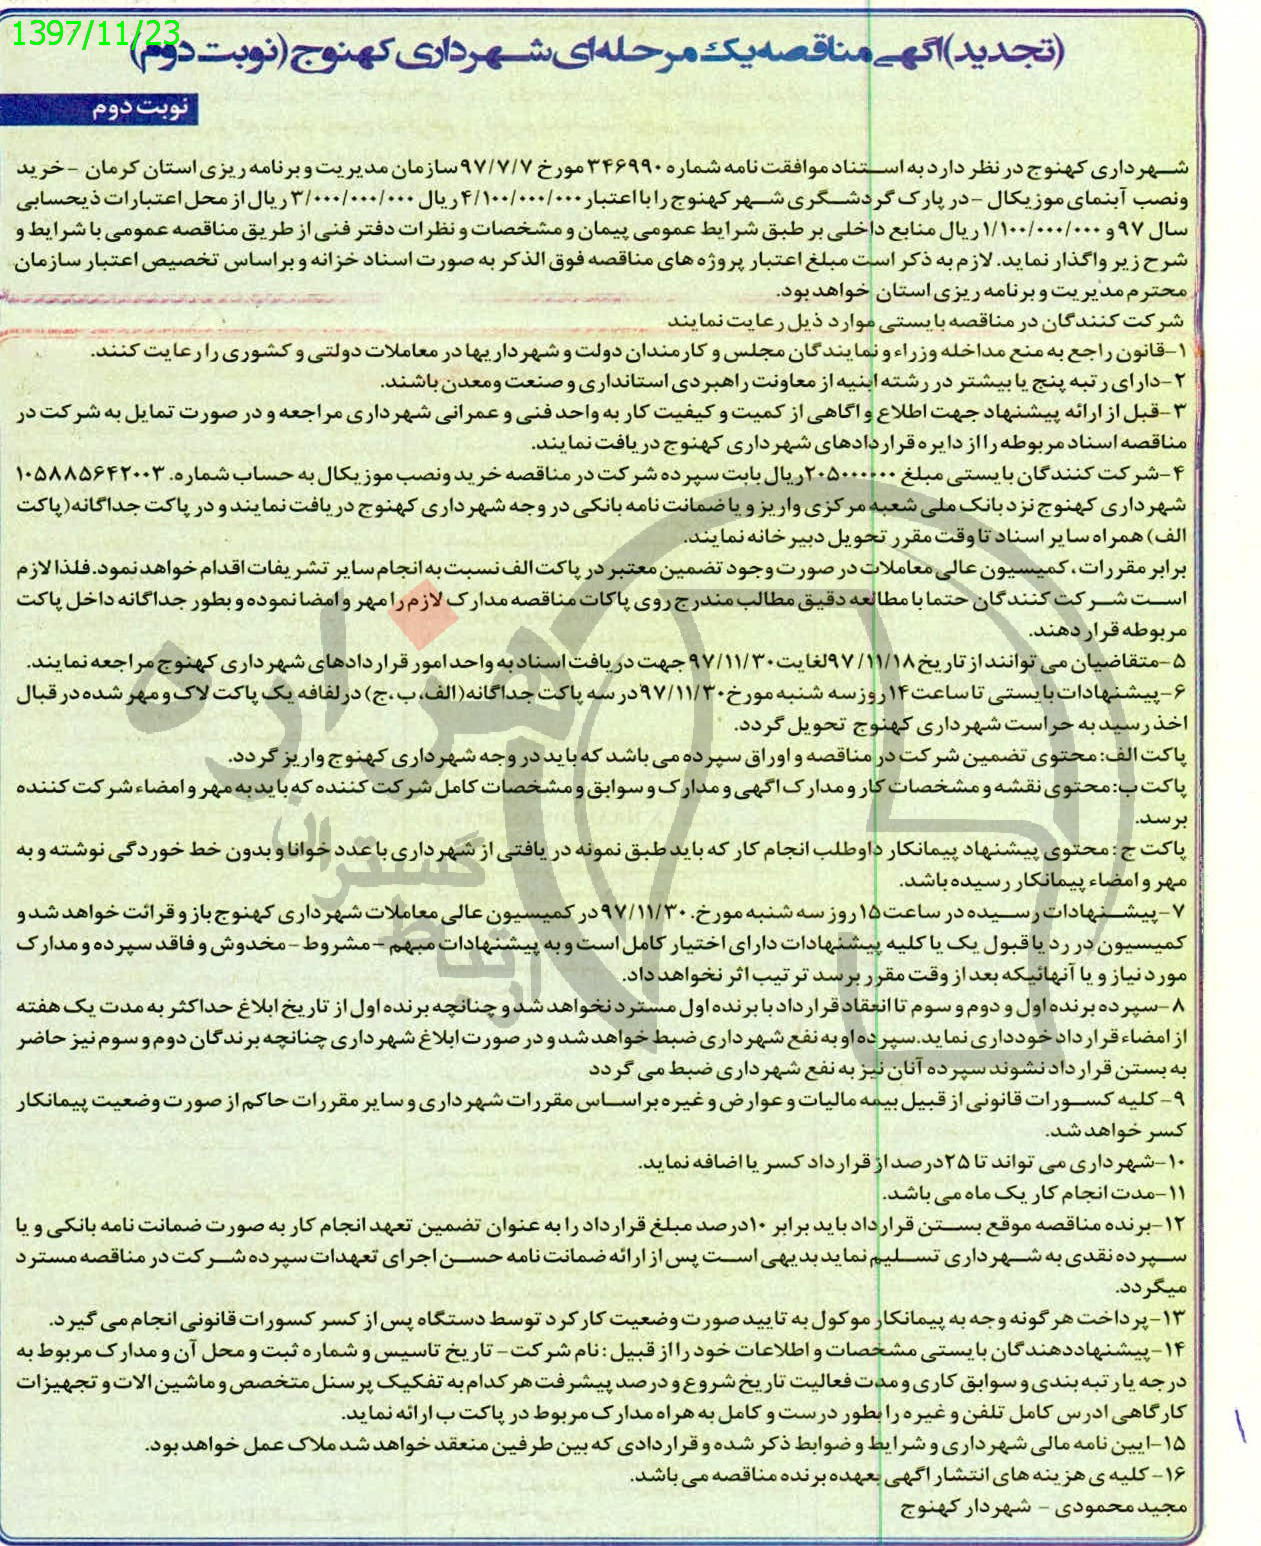 1397/11/23
(تجدید)اگهی مناقصه یک مرحله ای شهرداری کهنوج(نوبت دوم)
نوبت دوم
شهرداری کهنوج در نظر دارد به استناد موافقت نامه شماره ۳۴۶۹۹۰ مورخ ۹۷/۷/۷ سازمان مدیریت و برنامه ریزی استان کرمان - خرید
ونصب آبنمای موزیکال - در پارک گردشگری شهر کهنوج را با اعتبار ۴/۱۰۰/۰۰۰/۰۰۰ ریال ۳/۰۰۰/۰۰۰/۰۰۰ ریال از محل اعتبارات ذیحسابی
سال ۹۷ و ۱/۱۰۰/۰۰۰/۰۰۰ ریال منابع داخلی بر طبق شرایط عمومی پیمان و مشخصات و نظرات دفتر فنی از طریق مناقصه عمومی با شرایط و
شرح زیر واگذار نماید. لازم به ذکر است مبلغ اعتبار پروژه های مناقصه فوق الذکر به صورت اسناد خزانه و براساس تخصیص اعتبار سازمان
محترم مدیریت و برنامه ریزی استان خواهد بود.
شرکت کنندگان در مناقصه بایستی موارد ذیل رعایت نمایند
۱-قانون راجع به منع مداخله وزراء و نمایندگان مجلس و کارمندان دولت و شهرداریها در معاملات دولتی و کشوری را رعایت کنند.
۲-دارای رتبه پنج یا بیشتر در رشته ابنیه از معاونت راهبردی استانداری و صنعت ومعدن باشند.
۳-قبل از ارائه پیشنهاد جهت اطلاع و اگاهی از کمیت و کیفیت کار به واحد فنی و عمرانی شهرداری مراجعه و در صورت تمایل به شرکت در
مناقصه اسناد مربوطه را از دایره قراردادهای شهرداری کهنوج دریافت نمایند.
۴-شرکت کنندگان بایستی مبلغ ۲۰۵۰۰۰۰۰۰ ریال بابت سپرده شرکت در مناقصه خرید ونصب موزیکال به حساب شماره. ۱۰۵۸۸۵۶۴۲۰۰۳
شهرداری کهنوج نزد بانک ملی شعبه مرکزی واریز و یا ضمانت نامه بانکی در وجه شهرداری کهنوج دریافت نمایند و در پاکت جداگانه(پاکت
الف) همراه سایر اسناد تا وقت مقرر تحویل دبیرخانه نمایند.
برابر مقررات، کمیسیون عالی معاملات در صورت وجود تضمین معتبر در پاکت الف نسبت به انجام سایر تشریفات اقدام خواهد نمود. فلذا لازم
است شرکت کنندگان حتما با مطالعه دقیق مطالب مندرج روی پاکات مناقصه مدارک لازم را مهر و امضا نموده و بطور جداگانه داخل پاکت
مربوطه قرار دهند.
۵-متقاضیان می توانند از تاریخ ۹۷/۱۱/۱۸ لغایت ۹۷/۱۱/۳۰ جهت دریافت اسناد به واحد امور قراردادهای شهرداری کهنوج مراجعه نمایند.
۶-پیشنهادات بایستی تا ساعت ۱۴ روز سه شنبه مورخ ۹۷/۱۱/۳۰ در سه پاکت جداگانه (الف، ب ،ج) در لفافه یک پاکت لاک و مهر شده در قبال
اخذ رسید به حراست شهرداری کهنوج تحویل گردد.
پاکت الف: محتوی تضمین شرکت در مناقصه و اوراق سپرده می باشد که باید در وجه شهرداری کهنوج واریز گردد.
پاکت ب: محتوی نقشه و مشخصات کار و مدارک اگهی و مدارک و سوابق و مشخصات کامل شرکت کننده که باید به مهر و امضاء شرکت کننده
برسد.
پاکت ج : محتوی پیشنهاد پیمانکار داوطلب انجام کار که باید طبق نمونه دریافتی از شهرداری با عدد خوانا و بدون خط خوردگی نوشته و به
مهر و امضاء پیمانکار رسیده باشد.
۷-پیشنهادات رسیده در ساعت ۱۵ روز سه شنبه مورخ. ۹۷/۱۱/۳۰ در کمیسیون عالی معاملات شهرداری کهنوج باز و قرائت خواهد شد و
کمیسیون در رد یا قبول یک یا کلیه پیشنهادات دارای اختیار کامل است و به پیشنهادات مبهم - مشروط - مخدوش و فاقد سپرده و مدارک
مورد نیاز و یا آنهائیکه بعد از وقت مقرر برسد ترتیب اثر نخواهد داد.
۸-سپرده برنده اول و دوم و سوم تا انعقاد قرارداد با برنده اول مسترد نخواهد شد و چنانچه برنده اول از تاریخ ابلاغ حداکثر به مدت یک هفته
از امضاء قرارداد خودداری نماید. سپرده او به نفع شهرداری ضبط خواهد شد و در صورت ابلاغ شهرداری چنانچه برندگان دوم و سوم نیز حاضر
به بستن قرارداد نشوند سپرده آنان نیز به نفع شهرداری ضبط می گردد
۹- کلیه کسورات قانونی از قبیل بیمه مالیات و عوارض و غیره براساس مقررات شهرداری و سایر مقررات حاکم از صورت وضعیت پیمانکار
کسر خواهد شد.
۱۰-شهرداری می تواند تا ۲۵ درصد از قرارداد کسر یا اضافه نماید.
۱۱-مدت انجام کار یک ماه می باشد.
۱۲-برنده مناقصه موقع بستن قرارداد باید برابر ۱۰درصد مبلغ قرارداد را به عنوان تضمین تعهد انجام کار به صورت ضمانت نامه بانکی و یا
سپرده نقدی به شهرداری تسلیم نماید بدیهی است پس از ارائه ضمانت نامه حسن اجرای تعهدات سپرده شرکت در مناقصه مسترد
میگردد.
۱۳-پرداخت هر گونه وجه به پیمانکار موکول به تایید صورت وضعیت کارکرد توسط دستگاه پس از کسر کسورات قانونی انجام می گیرد.
۱۴-پیشنهاددهندگان بایستی مشخصات و اطلاعات خود را از قبیل : نام شرکت- تاریخ تاسیس و شماره ثبت و محل آن و مدارک مربوط به
درجه یا رتبه بندی و سوابق کاری و مدت فعالیت تاریخ شروع و درصد پیشرفت هر کدام به تفکیک پرسنل متخصص و ماشین الات و تجهیزات
کارگاهی ادرس کامل تلفن و غیره را بطور درست و کامل به هراه مدارک مربوط در پاکت ب ارائه نماید.
۱۵-ایین نامه مالی شهرداری و شرایط و ضوابط ذکر شده و قراردادی که بین طرفین منعقد خواهد شد ملاک عمل خواهد بود.
۱۶- کلیه ی هزینه های انتشار اگهی بعهده برنده مناقصه می باشد.
مجید محمودی - شهردار کهنوج